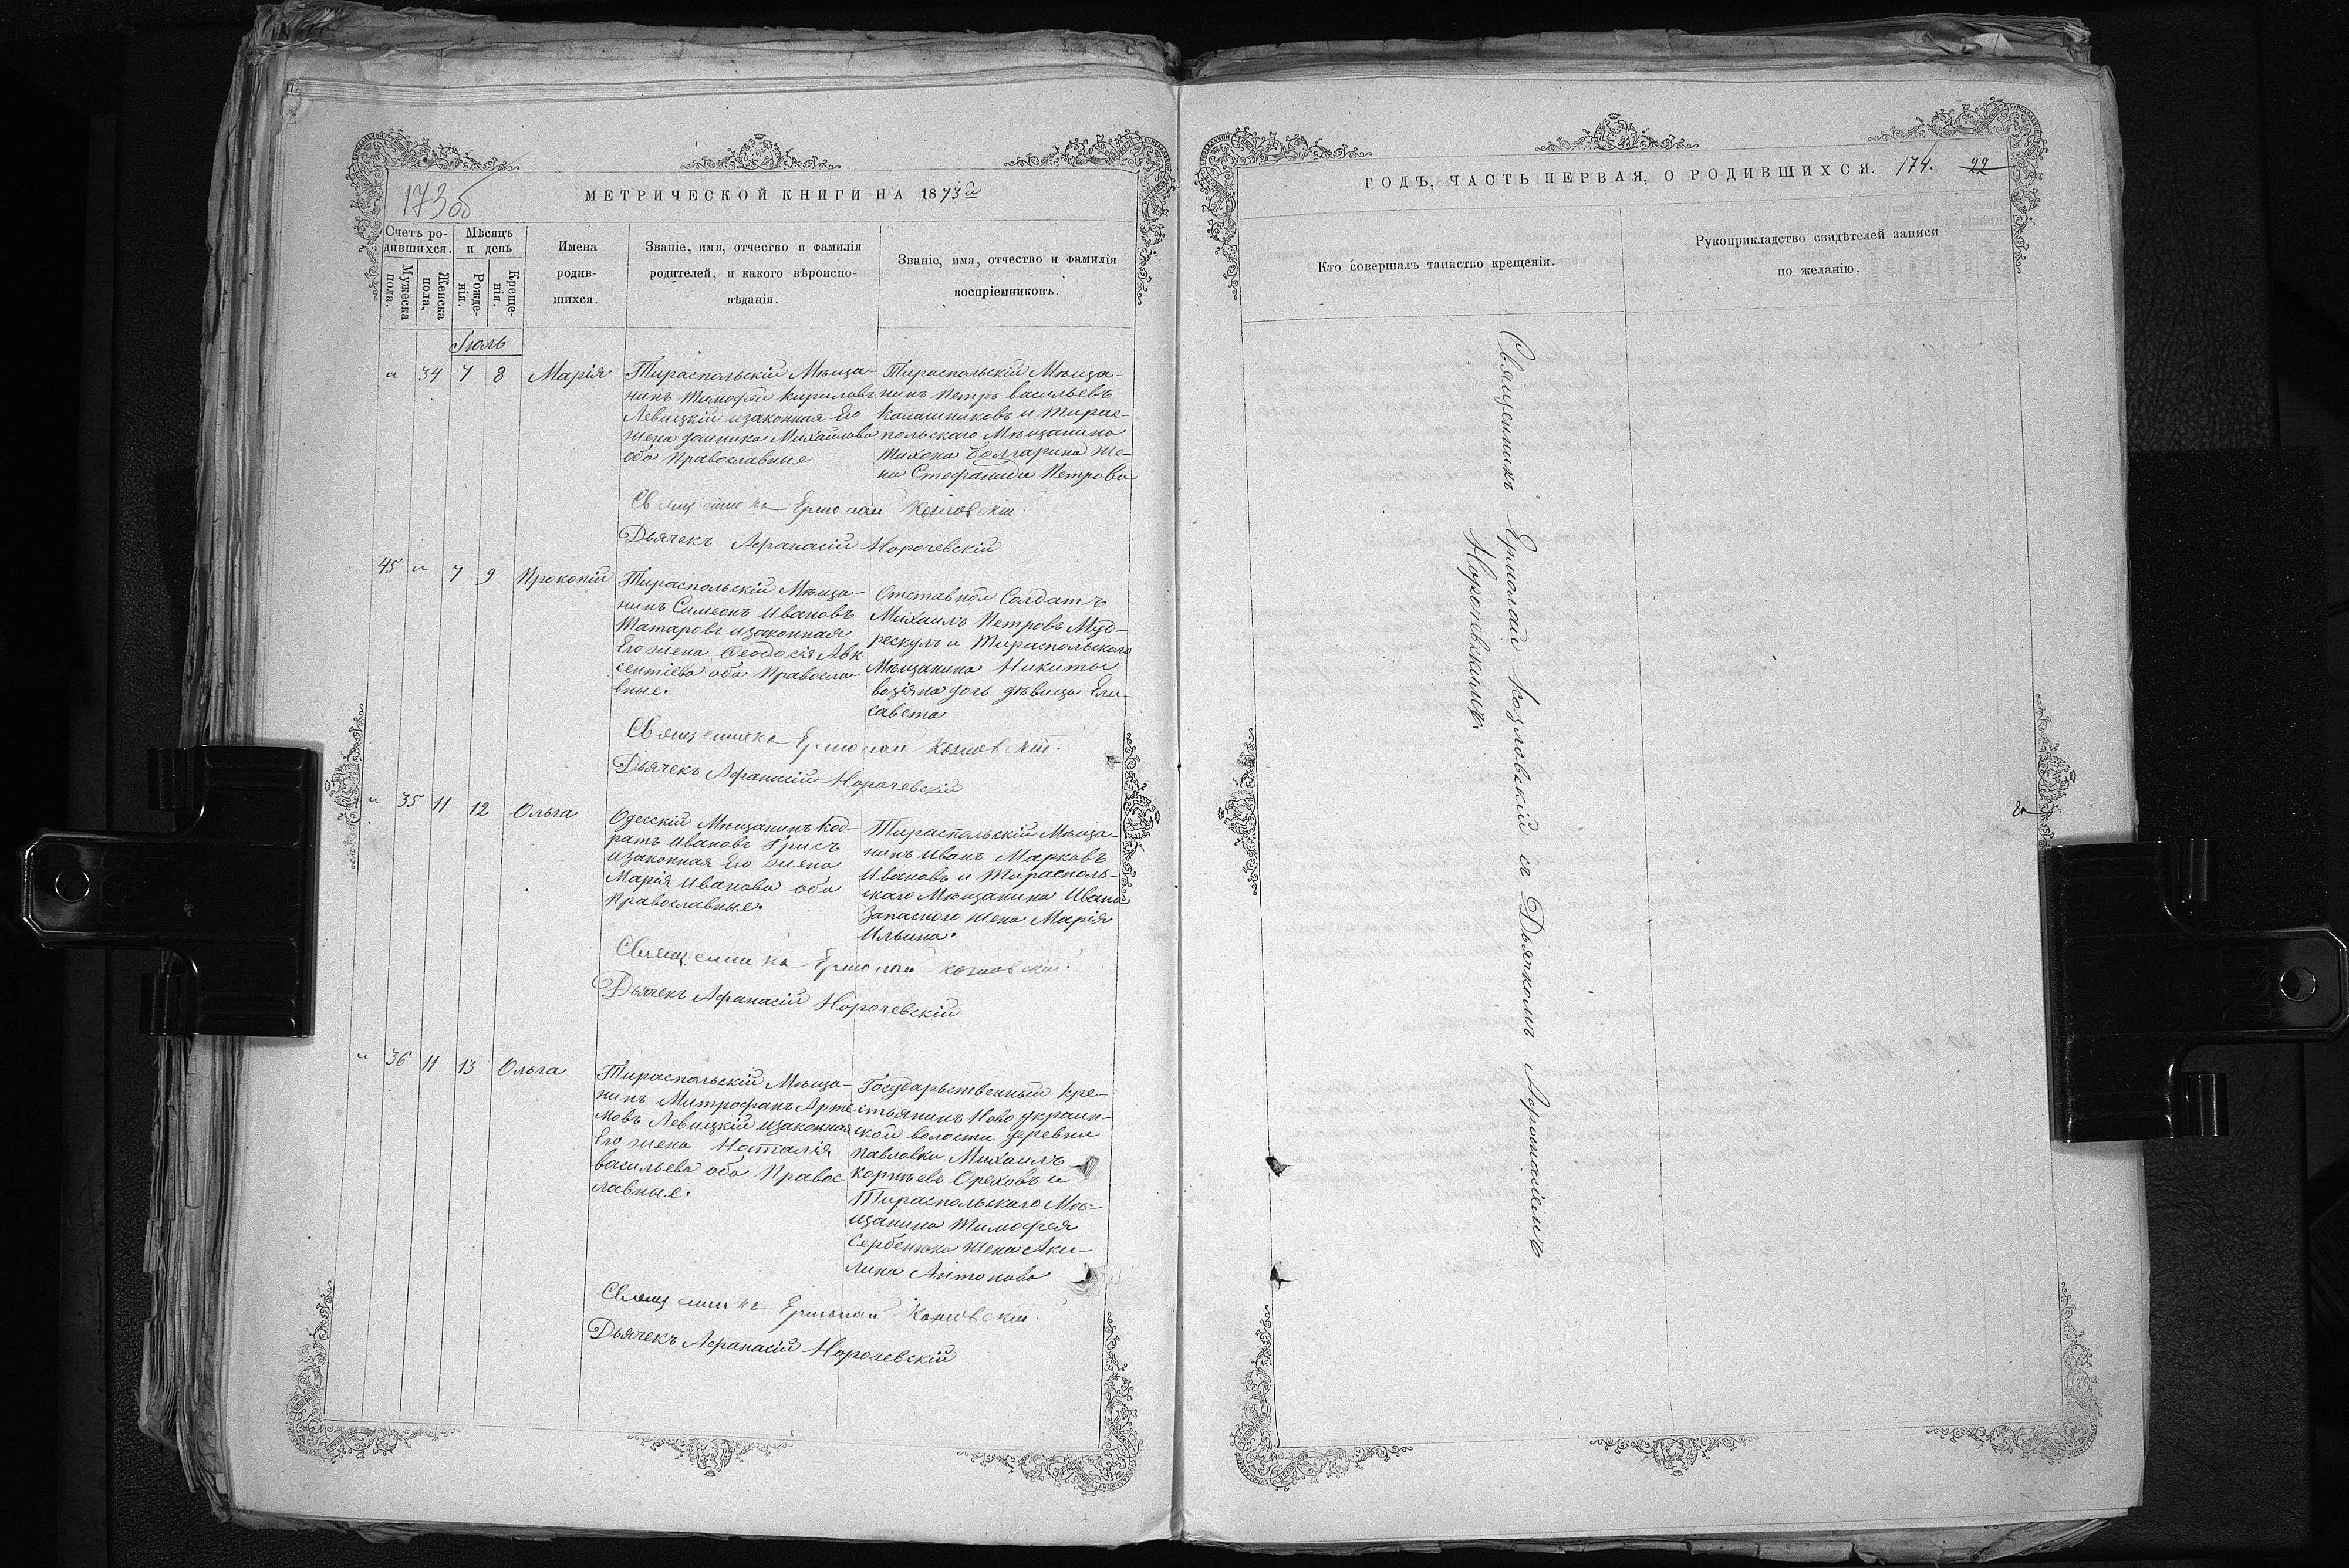 МЕТРИЧЕСКОЙ КНИГИ НА 1873й
173об
Счетъ ро-
дившихся.
Мужеска
пола.
Женска
пола.
Мѣсяцъ
и день
Рожде-
нія.
Креще-
нія.
Имена
родив-
шихся.
Званіе, имя, отчество и фамилія
родителей, и какого вѣроиспо-
вѣданія.
Званіе, имя, отчество и фамилія
воспріемниковъ.
Іюль
„ 34 7 8 Марія
Тираспольскій Мѣща-
нинъ Тимофей Кириловъ
Левицкій изаконная Его
жена Домника Михайлова
оба Православные
Тираспольскій Мѣща-
нинъ Петръ Васильевъ
Калашниковъ и Тирас-
польскаго Мѣщанина
Тихона Болгарина же-
на Стефанида Петрова
Священникъ Ермолай Козловскій.
Дьячекъ Афанасій Норочевскій
45 „ 7 9 Прокопій
Тираспольскій Мѣща-
нинъ Симеонъ Ивановъ
Татаровъ изаконная
Его жена Феодосія Авк-
сентіева оба Правосла-
вные.
Отставной Солдатъ
Михаилъ Петровъ Муд-
рескулъ и Тираспольскаго
Мѣщанина Никиты
дочь дѣвица Ели-
савета
Священникъ Ермолай Козловскій.
Дьячекъ Афанасій Норочевскій
„ 35 11 12 Ольга
Одесскій Мѣщанинъ Код-
ратъ Ивановъ Грисъ
изаконная Его жена
Марія Иванова оба
Православные.
Тираспольскій Мѣща-
нинъ Иванъ Марковъ
Ивановъ и Тирасполь-
скаго Мѣщанина Ивана
Запасного жена Марія
Ильина.
Священникъ Ермолай Козловскій.
Дьячекъ Афанасій Норочевскій
„ 36 11 13 Ольга
Тираспольскій Мѣща-
нинъ Митрофанъ Арте-
мовъ Левицкій изаконная
Его жена Наталія
Васильева оба Правос-
лавные.
Государьственный Кре-
стьянинъ Ново украин-
ской волости деревни
Павловки Михаилъ
Карпѣевъ Ореховъ и
Тираспольскаго Мѣ-
щанина Тимофея
Сербенюка жена Аки-
лина Антонова
Священникъ Ермолай Козловскій.
Дьячекъ Афанасій Норочевскій
ГОДЪ, ЧАСТЬ ПЕРВАЯ, О РОДИВШИХСЯ. 174. 22
Кто совершалъ таинство крещенія.
Рукоприкладство свидѣтелей записи
по желанію.
Священникъ Ермолай Козловскій съ Дьячкомъ Афонасіемъ
Норочевскимъ.